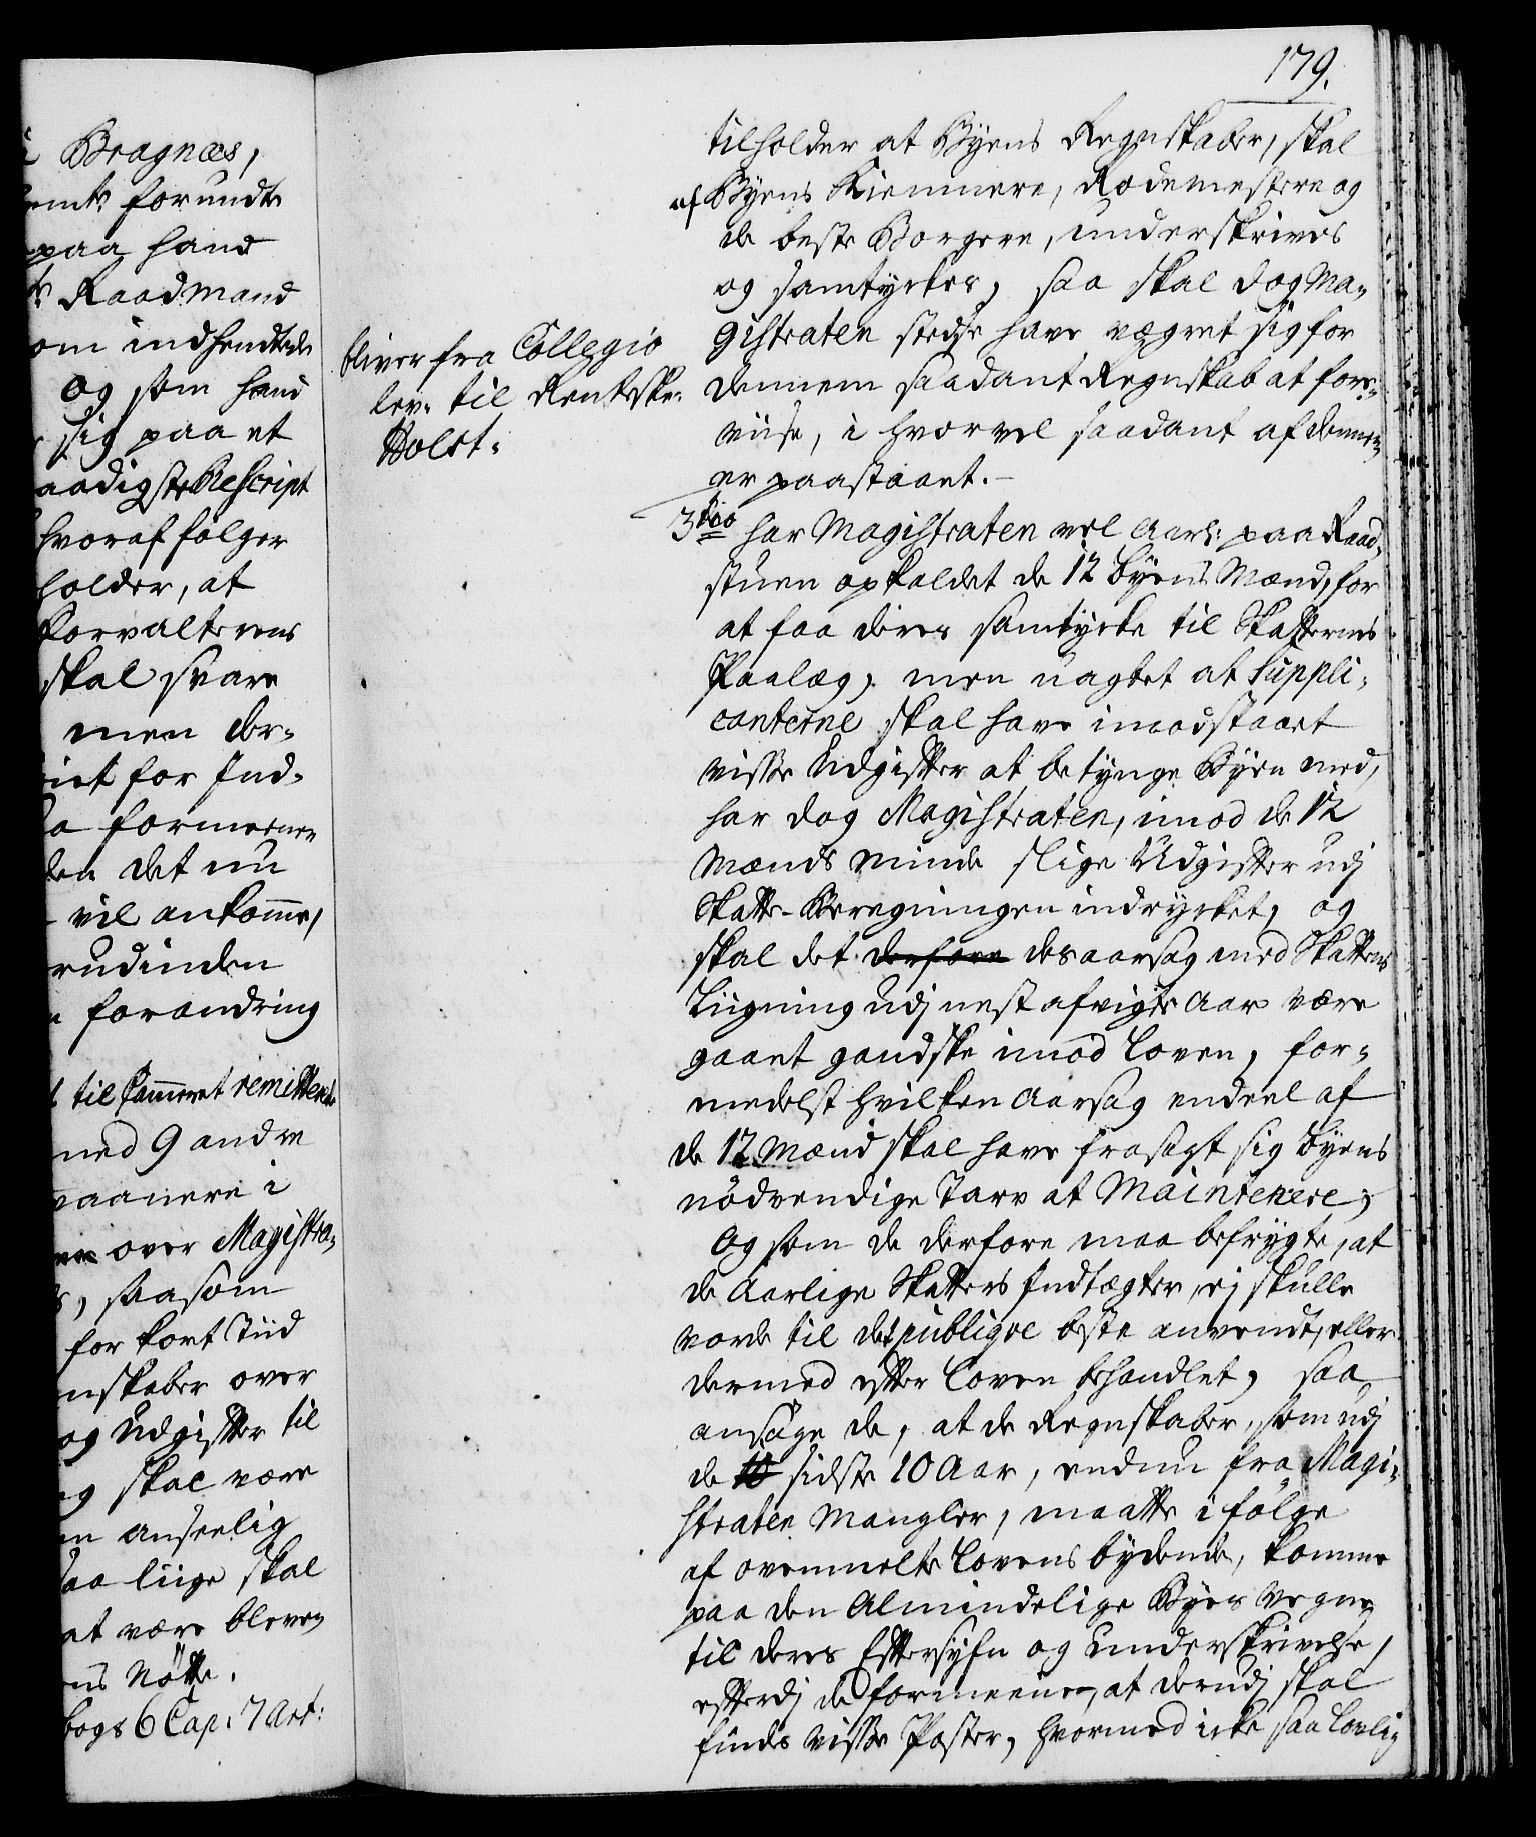 Bragnæs,
forundte
paa hand
Raadmand
om indhendtede
og som hand
sig paa et
aadigste Rescript
hvoraf følger
holder, at
forvalterens
skal svare
men der-
for Ind-
formeener
det nu
vil ankomme,
rudinden
forandring
til Cammeret remitterede
med 9 andre
vaanere i
over Magistra-
saasom
for kort Tiid
nskaber over
og Udgifter til
og skal være
anseelig
saa liige skal
at være bleven
ens Nøtte.
bogs 6 Cap: 7 Art:
bliver fra Collegio
lev: til Rentskr:
Holst.
179.
tilholder at Byens Regnskaber, skal
af Byens Kiemnere, Rodemestere og
de beste Borgere, underskrives
og samtyckes, saa skal dog Ma-
gistraten stedse have vægret sig for
dennem saadant Regnskab at fore-
viise, i hvorvel saadant af dennem
er paastaaet.
3tio har Magistraten vel aarl: paa Raad-
stuen opkaldet de 12 Byens Mænd, for
at faa deres samtycke til Skatternes
Paalæg, men uagtet at Suppli-
canterne skal have imodstaaet
visse Udgifter at betynge Byen med,
har dog Magistraten, imod de 12
Mænds minde slige Udgifter udj
Skatte-Beregningen indrycket, og
skal det derfore desaarsag med Skattens
Liigning udj nest afvigte Aar være
gaaet gandske imod Loven, for-
medelst hvilken Aarsag endeel af
de 12 Mænd skal have frasagt sig Byens
nödvendige Tarv at Maintenere,
Og som de derfore maa befrygte, at
de Aarlige Skatters Indtægter, ej skulle
vorde til det publiqve beste anvendt, eller
dermed efter Loven behandlet, saa
ansöge de, at de Regnskaber, som udj
de 10 sidste 10 Aar, endnu fra Magi-
straten Mangler, maatte i følge
af ovenmelte Lovens bydende, komme
paa den Almindelige Byes Vegne
til deres Eftersyfn og Underskrivelse,
efterdj de formeener, at derudj skal
findes visse Poster, hvormed icke saa lovlig